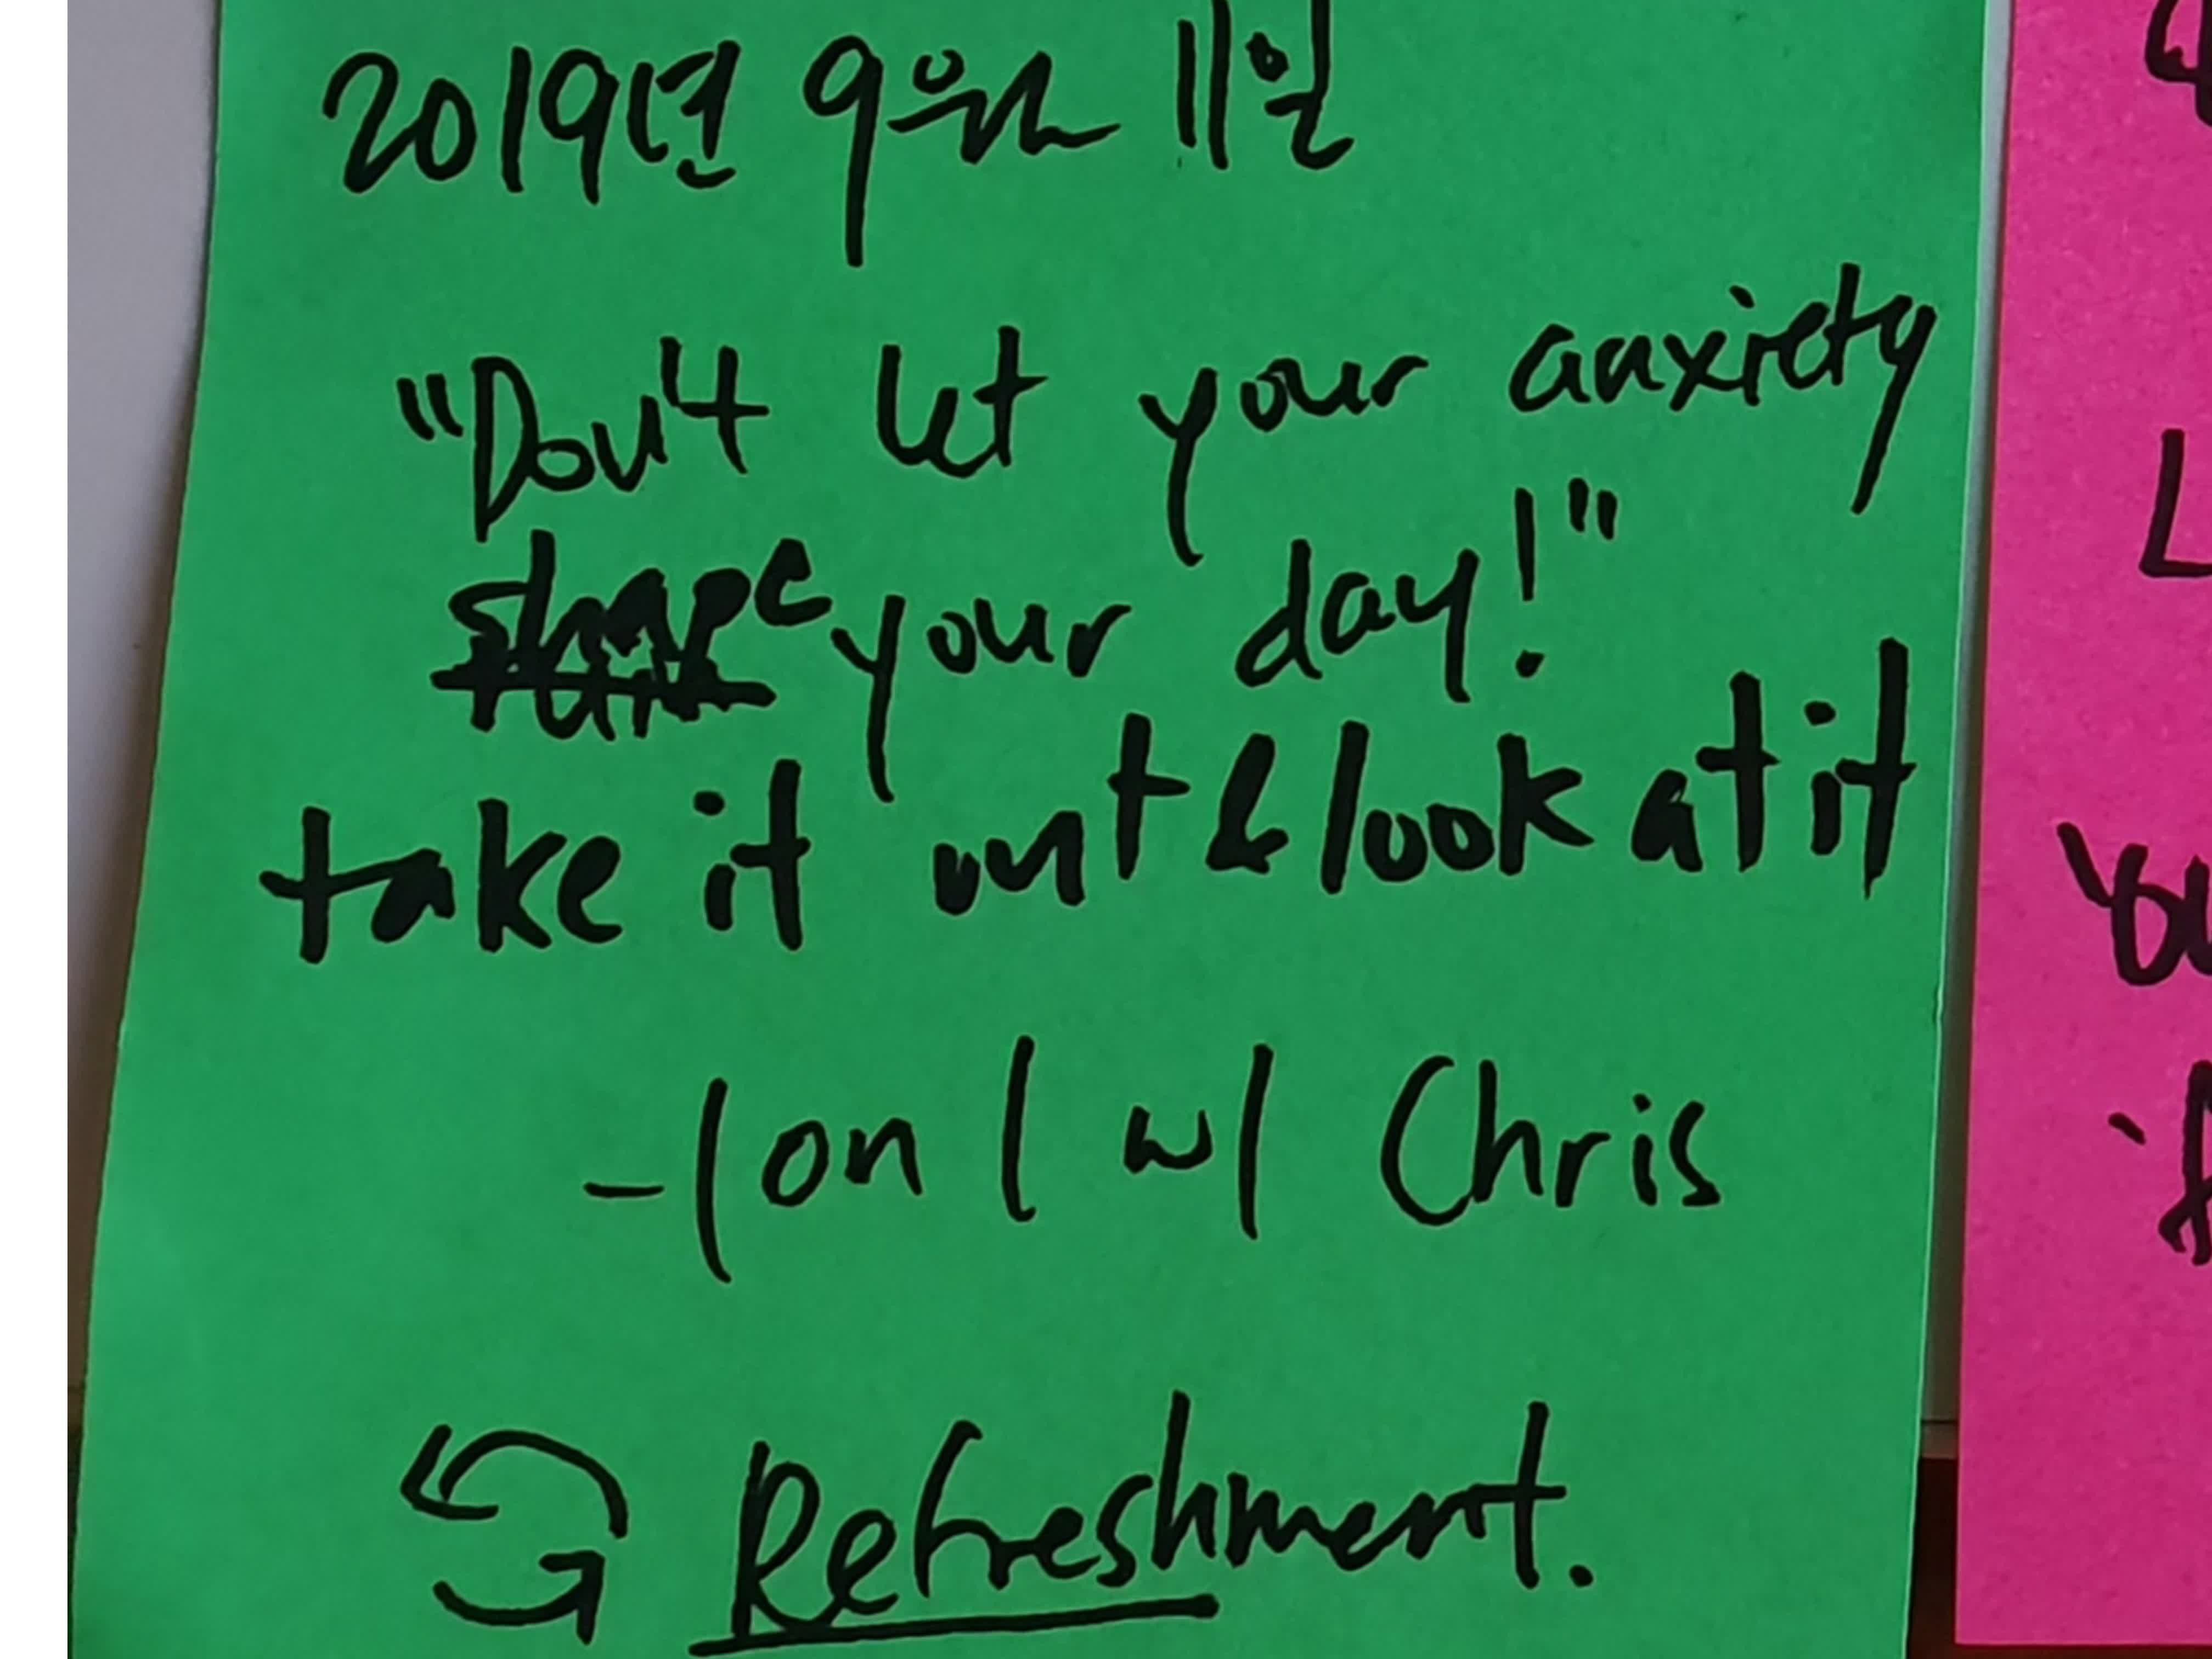 2019년 9월 11일
"Don't let your anxiety
shape your day!"
take it out & look at it
- 1 on 1 w/ Chris
Refreshment.